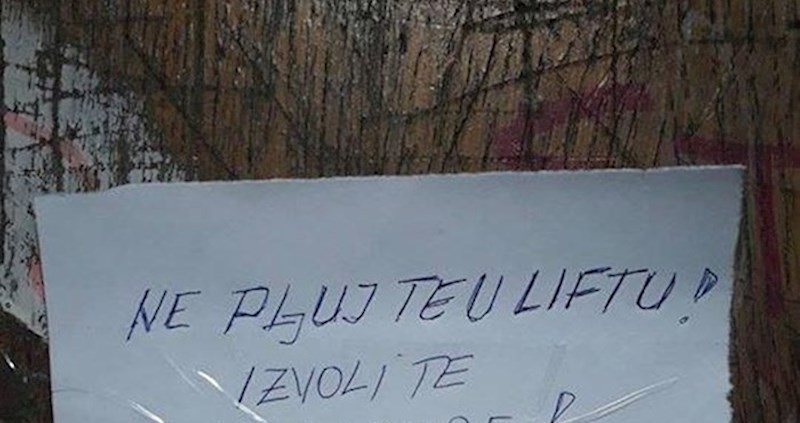 NE PLJUJTE U LIFTU!
IZVOLITE